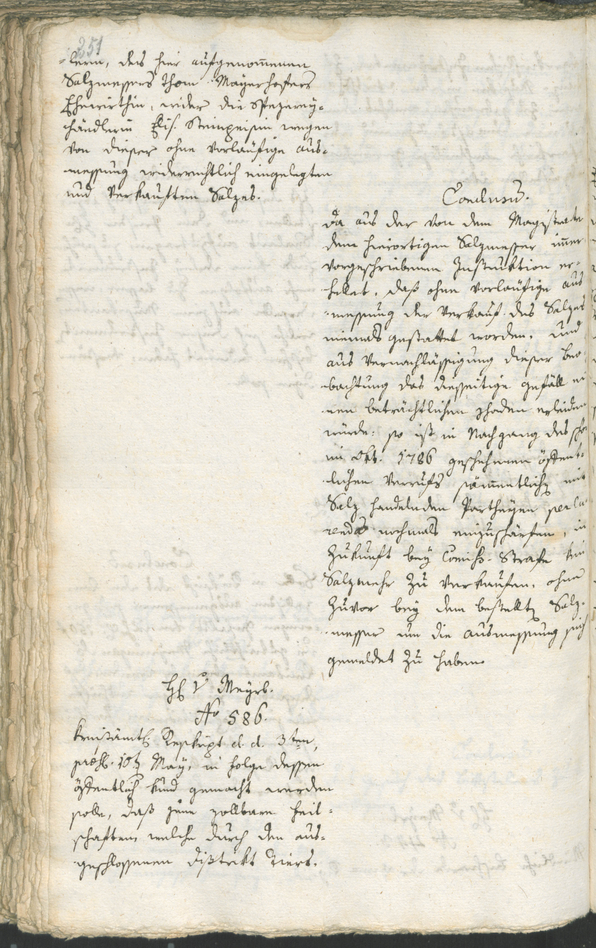 251
lerin, des hier aufgenommenen
Salzmessers Thom. Mayrhofers
Ehewirthin, wider die Spezerey-
händlerin Elis. Steinpeisin wegen
von dieser ohne vorläufige Aus-
messung widerrechtlich eingelegten
und verkauften Salzes.
Conclusū.
Da aus der von dem Magistrate
dem hierortigen Salzmesser immer
vorgeschriebenen Instruktion er-
hellet, daß ohne vorläufige Aus
messung der Verkauf des Salzes
niemals gestattet worden, und
aus Vernachlässigung dieser Beo-
bachtung das diesseitige Gefäll ei
nen beträchtlichen Schaden erleiden
würde: so ist in Nachgang des schon
im Okt. 1786 geschehenen öffent-
lichen Verrufs sämmentliche mit
Salz handelnden Partheyen
nochmals einzuschärfen, in
Zukunft bey Confis. Strafe kein
Salz mehr zu verkaufen, ohne
zuvor bey dem bestellte Salz-
messer um die Ausmessung sich
gemeldet zu haben.
H. v. Mayrl.
No 586.
Kreisämtl. Reskript d. d. 3ten,
praes. 10 May, in Folge dessen
öffentlich kund gemacht werden
solle, daß jene zollbare Feil-
schaften, welche durch den aus-
geschlossenen Distrikt Tiers.